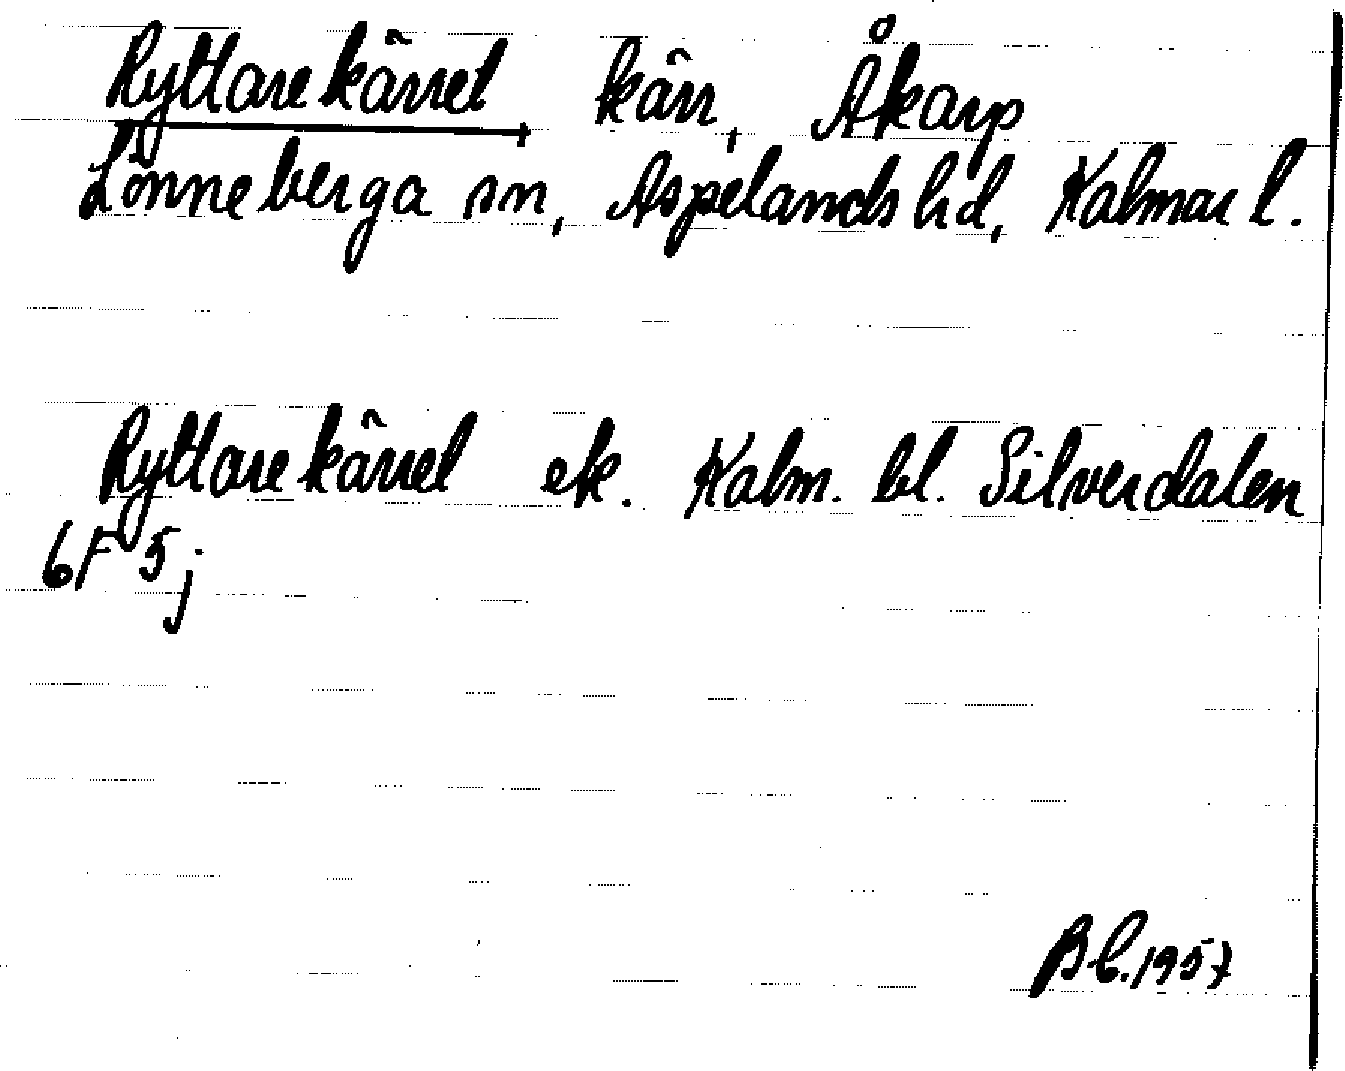 Ryttarekärret, kärr, Åkarp
Lönneberga sn, Aspelands hd, Kalmar l.
Ryttarekärret ek. Kalm. bl. Silverdalen
6F 5j
Bb. 1957